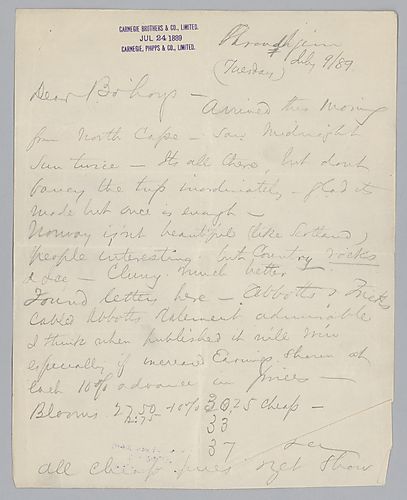 CARNEGIE BROTHERS & CO., LIMITED.
JUL 24 1889
CARNEGIE, PHIPPS & CO., LIMITED.
(Tuesday) July 9/89
Dear Bo'hoys -
Arrived this morning
from North Cape - saw Midnight
Sun twice - Its all there, but dont
fancy the trip inordinately - glad its
made but once is enough -
Norway isnt beautiful (like Scotland)
people interesting but Country rocks
& ice - Cluny much better
Found letters here - Abbotts & Fricks
Cabled Abbotts statement admirable
I think when published it will win
especially if increased Earnings shown at
Each 10% advance in prices -
Blooms 27.50 10% 30.25 cheap -
2.75
33
37
all cheap